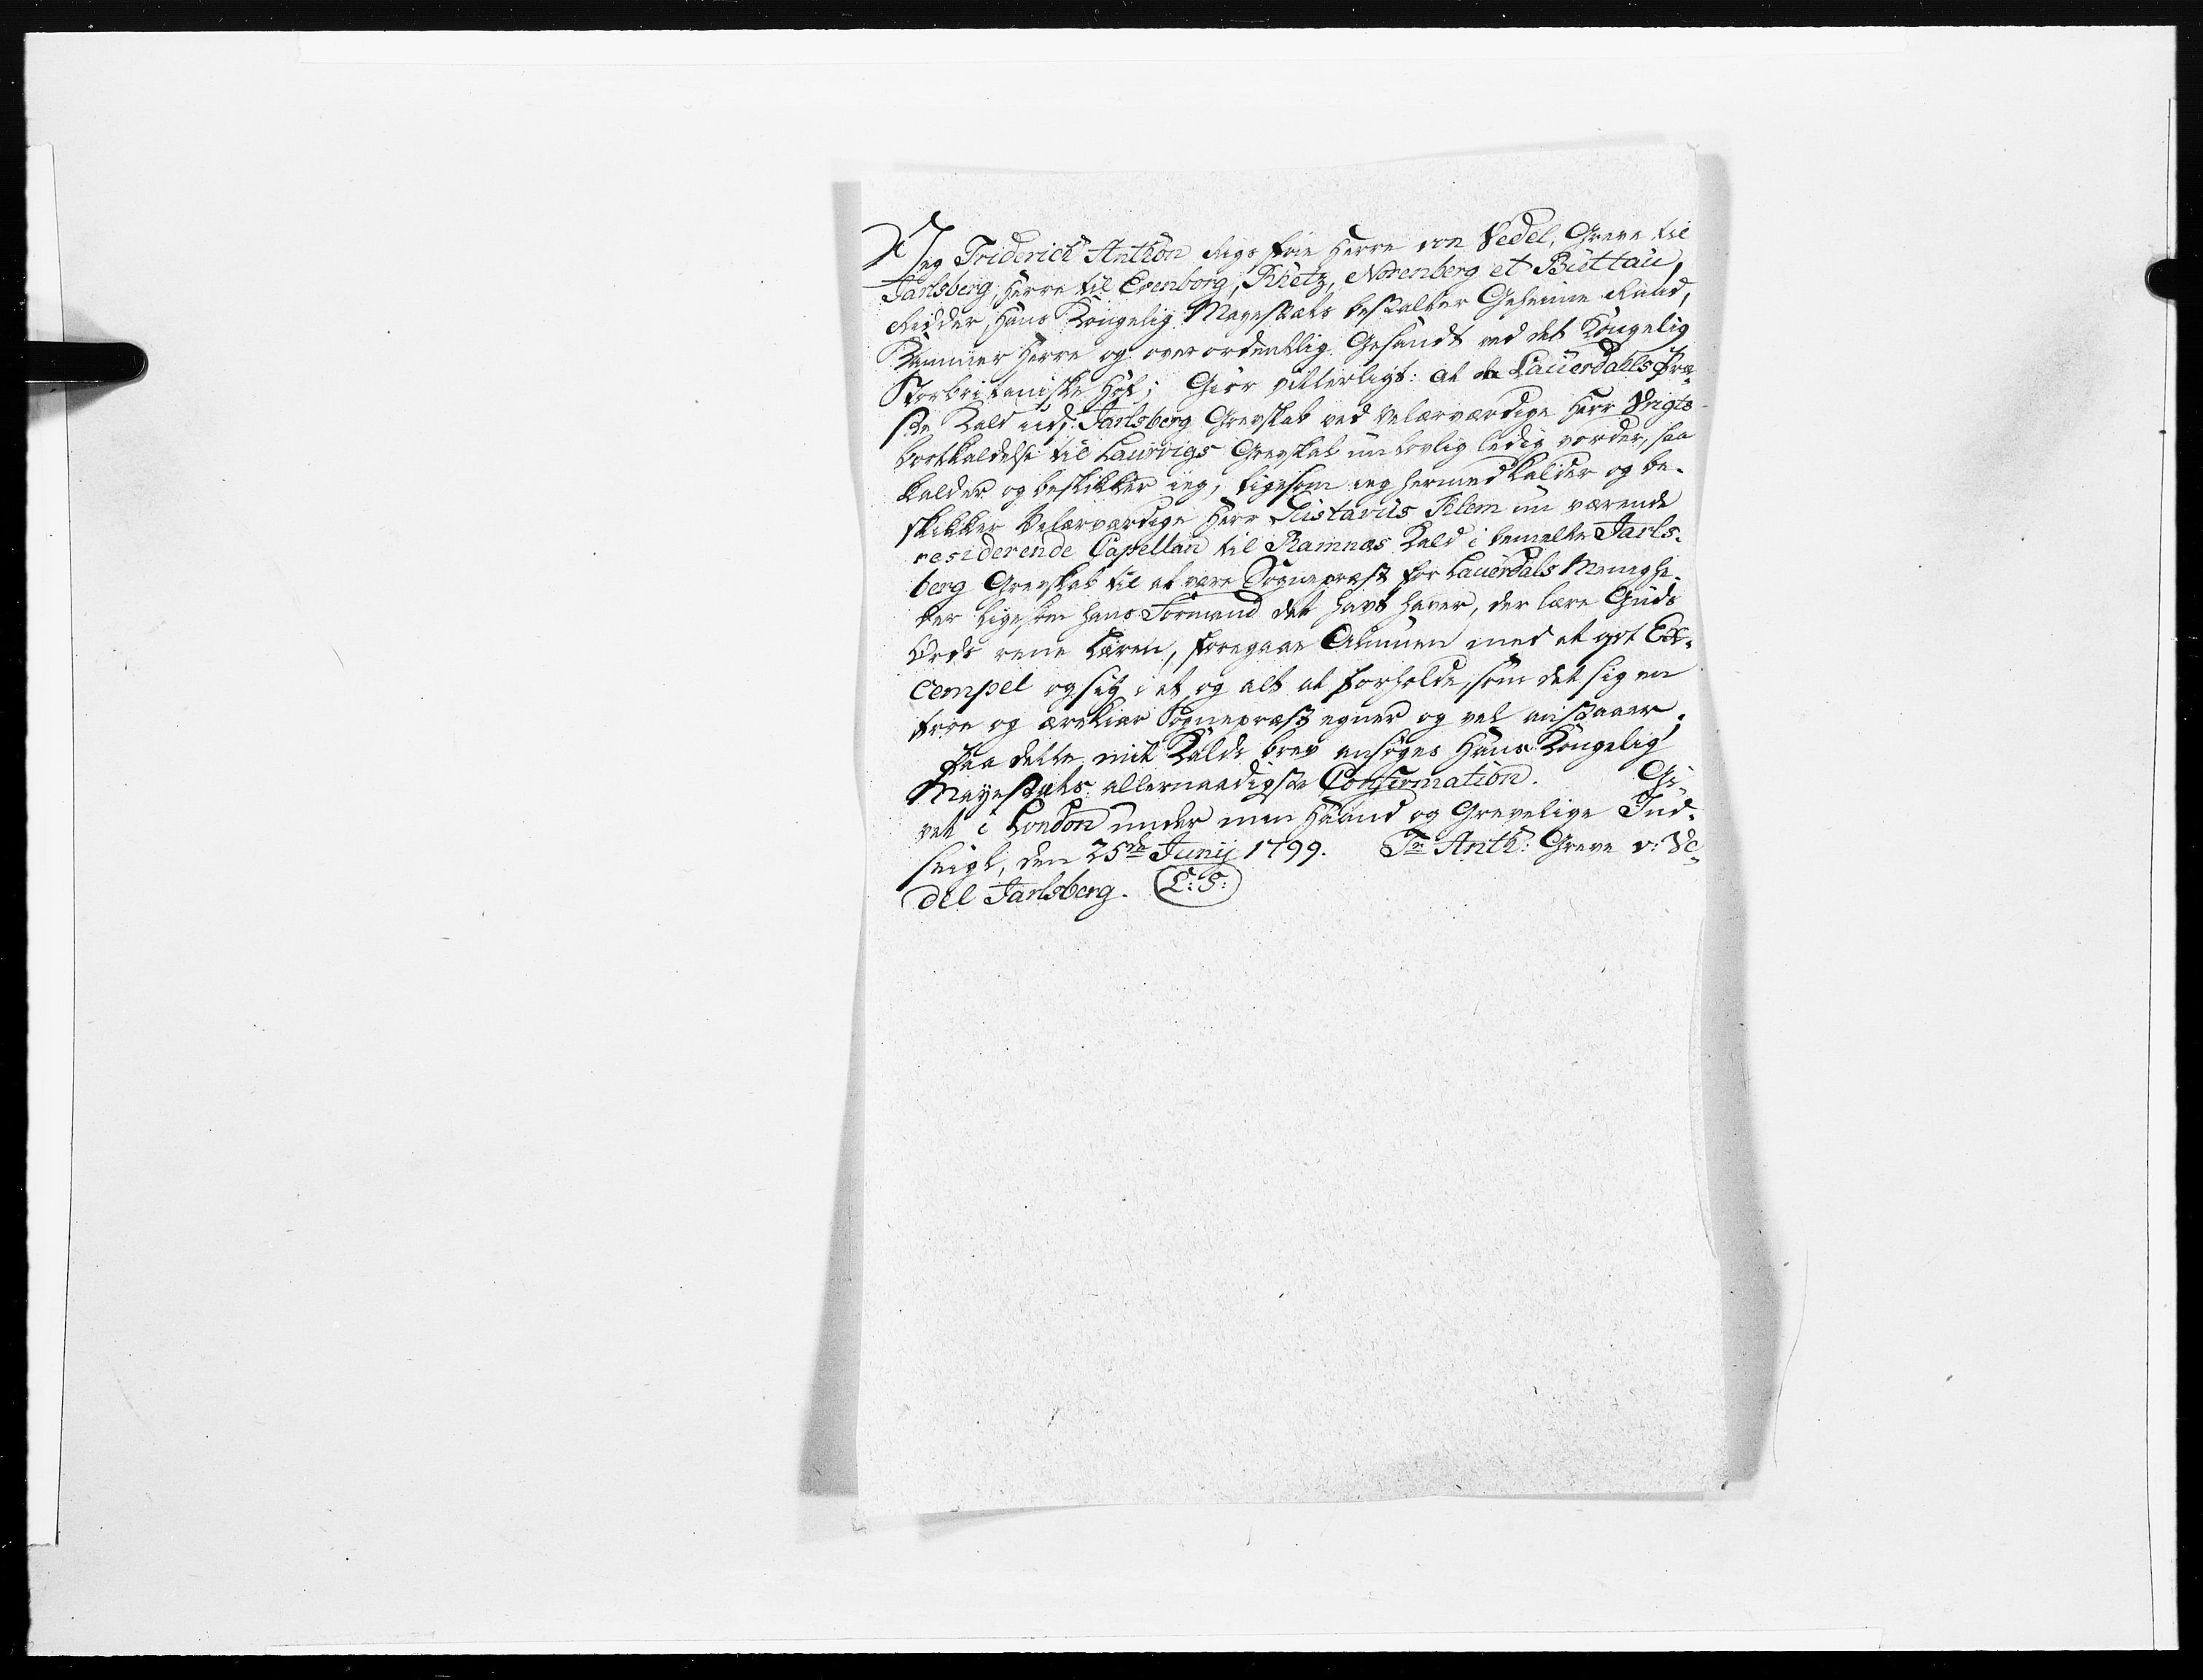 Jeg Friderich Anthon Rigs frie Herre von Vedel, Greve til
Jarlsberg, Herre til Evenborg, Kretz, Norenberg et Büttau,
Ridder, Hans Kongelig Mayestæts bestalter Geheime Raad,
Kammer Herre og overordentlig Gesandt ved det Kongelig
Storbritaniske Hof; Giør vitterligt: at da Lauerdahls Præ-
ste Kald udi Jarlsberg Grevskab ved Velærværdige Herr Vrigts
bortkaldelse til Laurvigs Grevskab nu lovlig ledig vorder, saa
kalder og beskikker ieg, ligesom ieg hermed kalder og be-
skikker Velærværdige Herr Gustavus Klem nu værende
residerende Capellan til Ramnæs Kald i bemelte Jarls-
berg Grevskab til at være Sognepræst for Lauerdals Meenighe-
der ligesom hans Formand det havt haver, der lære Guds
Ords reene Lærer, foregaae Almuen med et got Ex-
cempel og sig i et og alt at forholde, som det sig en
troe og ærekiær Sognepræst egner og vel anstaaer.
Paa dette mit Kalds brev ansøges Hans Kongelig
Mayestæts allernaadigste Confirmation. Gi-
vet i London under min Haand og Grevelige Ind-
seigl, den 25de Junij 1799. Fr. Anth: Greve v: Ve-
del Jarlsberg. L: S: